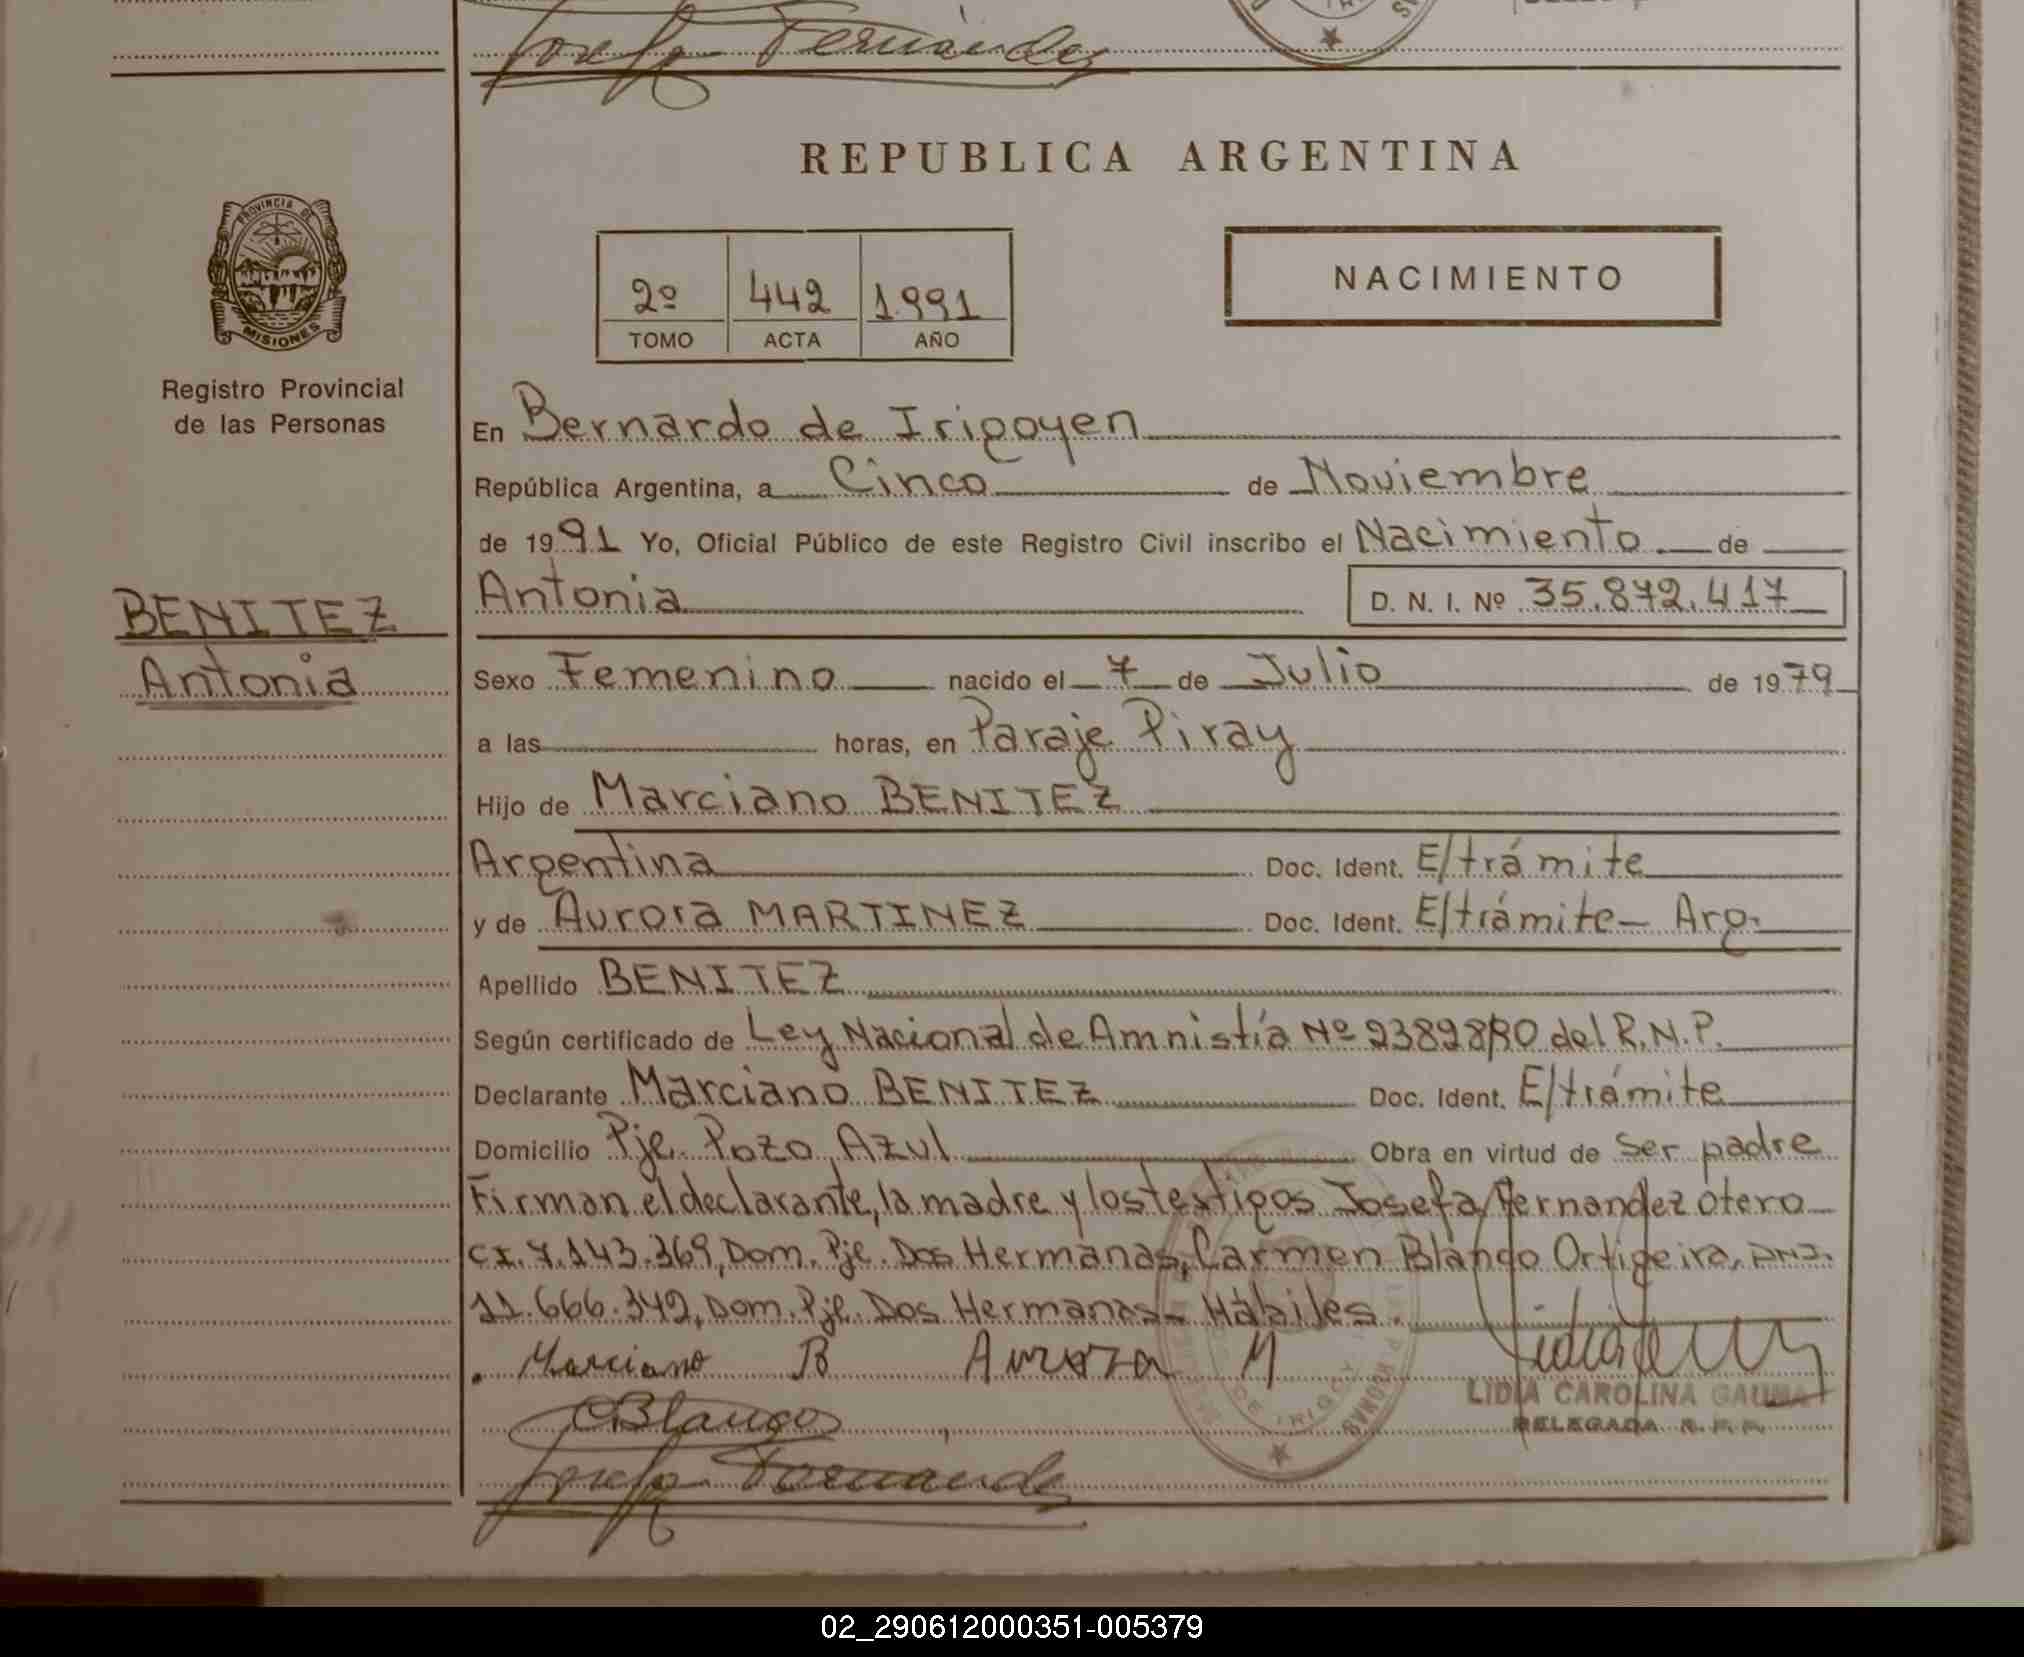 Josefa Fernández
REPUBLICA ARGENTINA
PROVINCIA DE
MISIONES
Registro Provincial
de las Personas
2º 442 1.991
TOMO ACTA AÑO
NACIMIENTO
En Bernardo de Irigoyen
República Argentina, a Cinco de Noviembre
de 1991 Yo, Oficial Público de este Registro Civil inscribo el Nacimiento de
BENITEZ
Antonia
Antonia D. N. I. Nº 35.872.417
Sexo Femenino nacido el 7 de Julio de 1979
a las horas, en Paraje Piray
Hijo de Marciano BENITEZ
Argentina Doc. Ident. E/trámite
y de Aurora MARTINEZ Doc. Ident. E/trámite- Arg.
Apellido BENITEZ
Según certificado de Ley Nacional de Amnistía Nº 23828/90 del R.N.P.
Declarante Marciano BENITEZ Doc. Ident. E/trámite
Domicilio Pje. Pozo Azul Obra en virtud de ser padre
Firman el declarante, la madre y los testigos Josefa Fernandez Otero
CI. 7.143.369, Dom. Pje. Dos Hermanas, Carmen Blanco Ortigeira, DNI.
11.666.342, Dom. Pje. Dos Hermanas- Hábiles.
Marciano B Aurora M
LIDIA CAROLINA
DELEGADA R. P. P.
C Blanco
Josefa Fernández
02_290612000351-005379